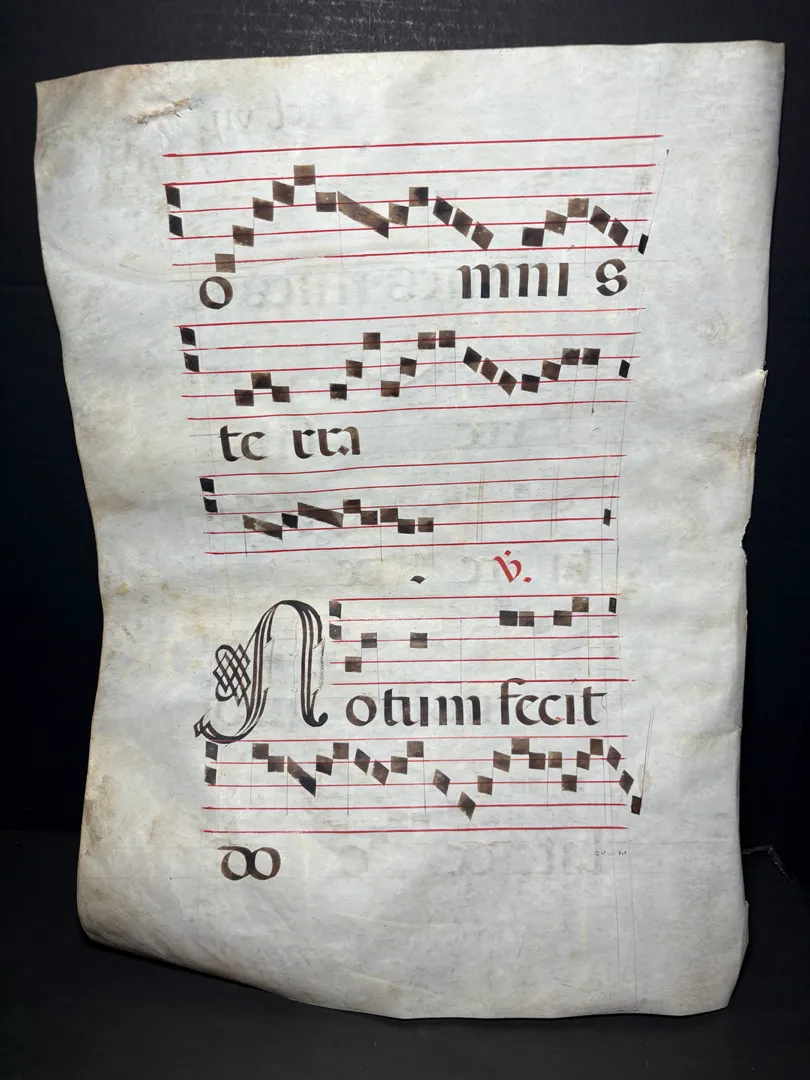 o mni s
te rra
℣.
Notum fecit
do